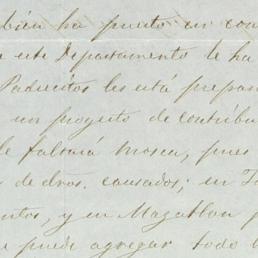 bien ha puesto en con
este Departamento le ha
Padrecitos les está prepa
un proyecto de contribu
le faltará mosca, pues
de dros. causados; en T
ntos, y en Mazatlan p
puede agregar todo l